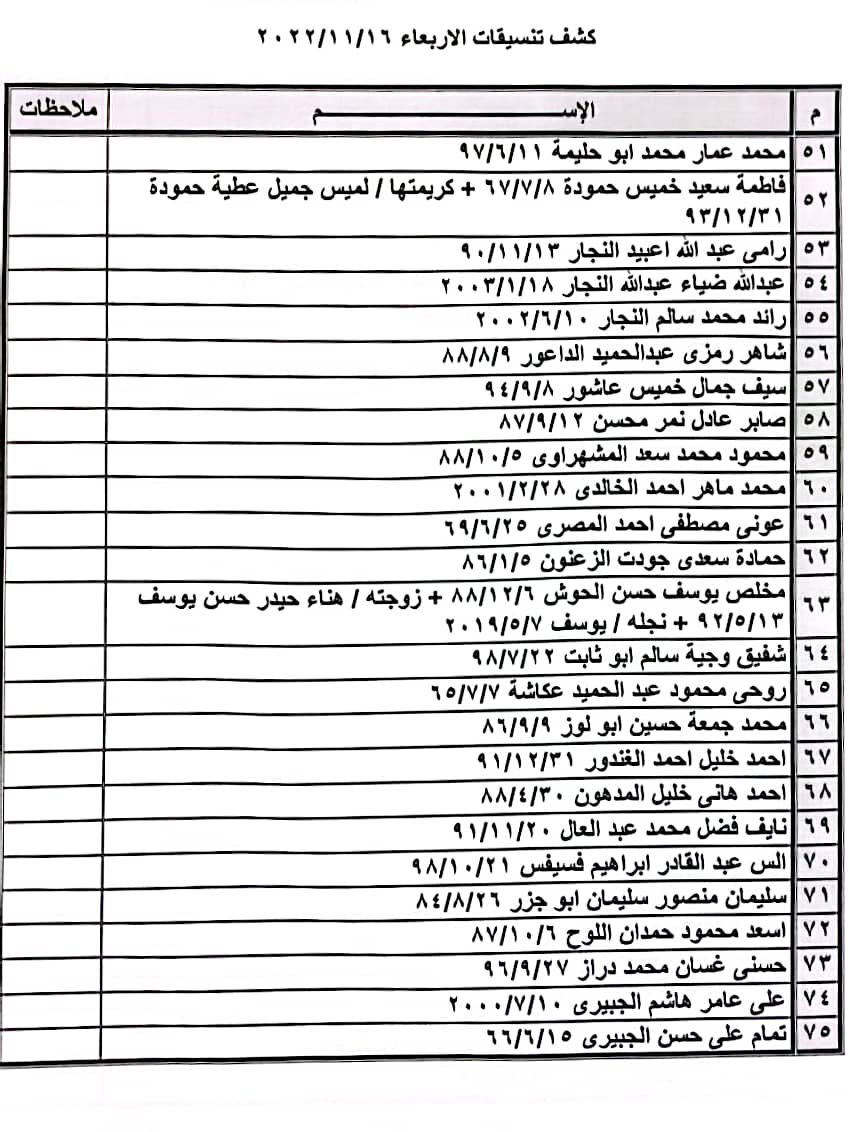 كشف تنسيقات الاربعاء ٢٠٢٢/١١/١٦
م الإســـــــــــم ملاحظات
٥١ محمد عمار محمد ابو حليمة ٩٧/٦/١١
٥٢ فاطمة سعيد خميس حمودة ٦٧/٧/٨ + كريمتها / لميس جميل عطية حمودة
٩٣/١٢/٣١
٥٣ رامى عبد الله اعبيد النجار ٩٠/١١/١٣
٥٤ عبدالله ضياء عبدالله النجار ٢٠٠٣/١/١٨
٥٥ رائد محمد سالم النجار ٢٠٠٢/٦/١٠
٥٦ شاهر رمزى عبدالحميد الداعور ٨٨/٨/٩
٥٧ سيف جمال خميس عاشور ٩٤/٩/٨
٥٨ صابر عادل نمر محسن ٨٧/٩/١٢
٥٩ محمود محمد سعد المشهراوى ٨٨/١٠/٥
٦٠ محمد ماهر احمد الخالدى ٢٠٠١/٢/٢٨
٦١ عونى مصطفى احمد المصرى ٦٩/٦/٢٥
٦٢ حمادة سعدى جودت الزعنون ٨٦/١/٥
٦٣ مخلص يوسف حسن الحوش ٨٨/١٢/٦ + زوجته / هناء حيدر حسن يوسف
٩٢/٥/١٣ + نجله / يوسف ٢٠١٩/٥/٧
٦٤ شفيق وجية سالم ابو ثابت ٩٨/٧/٢٢
٦٥ روحى محمود عبد الحميد عكاشة ٦٥/٧/٧
٦٦ محمد جمعة حسين ابو لوز ٨٦/٩/٩
٦٧ احمد خليل احمد الغندور ٩١/١٢/٣١
٦٨ احمد هانى خليل المدهون ٨٨/٤/٣٠
٦٩ نايف فضل محمد عبد العال ٩١/١١/٢٠
٧٠ الس عبد القادر ابراهيم فسيفس ٩٨/١٠/٢١
٧١ سليمان منصور سليمان ابو جزر ٨٤/٨/٢٦
٧٢ اسعد محمود حمدان اللوح ٨٧/١٠/٦
٧٣ حسنى غسان محمد دراز ٩٦/٩/٢٧
٧٤ على عامر هاشم الجبيرى ٢٠٠٠/٧/١٠
٧٥ تمام على حسن الجبيرى ٦٦/٦/١٥